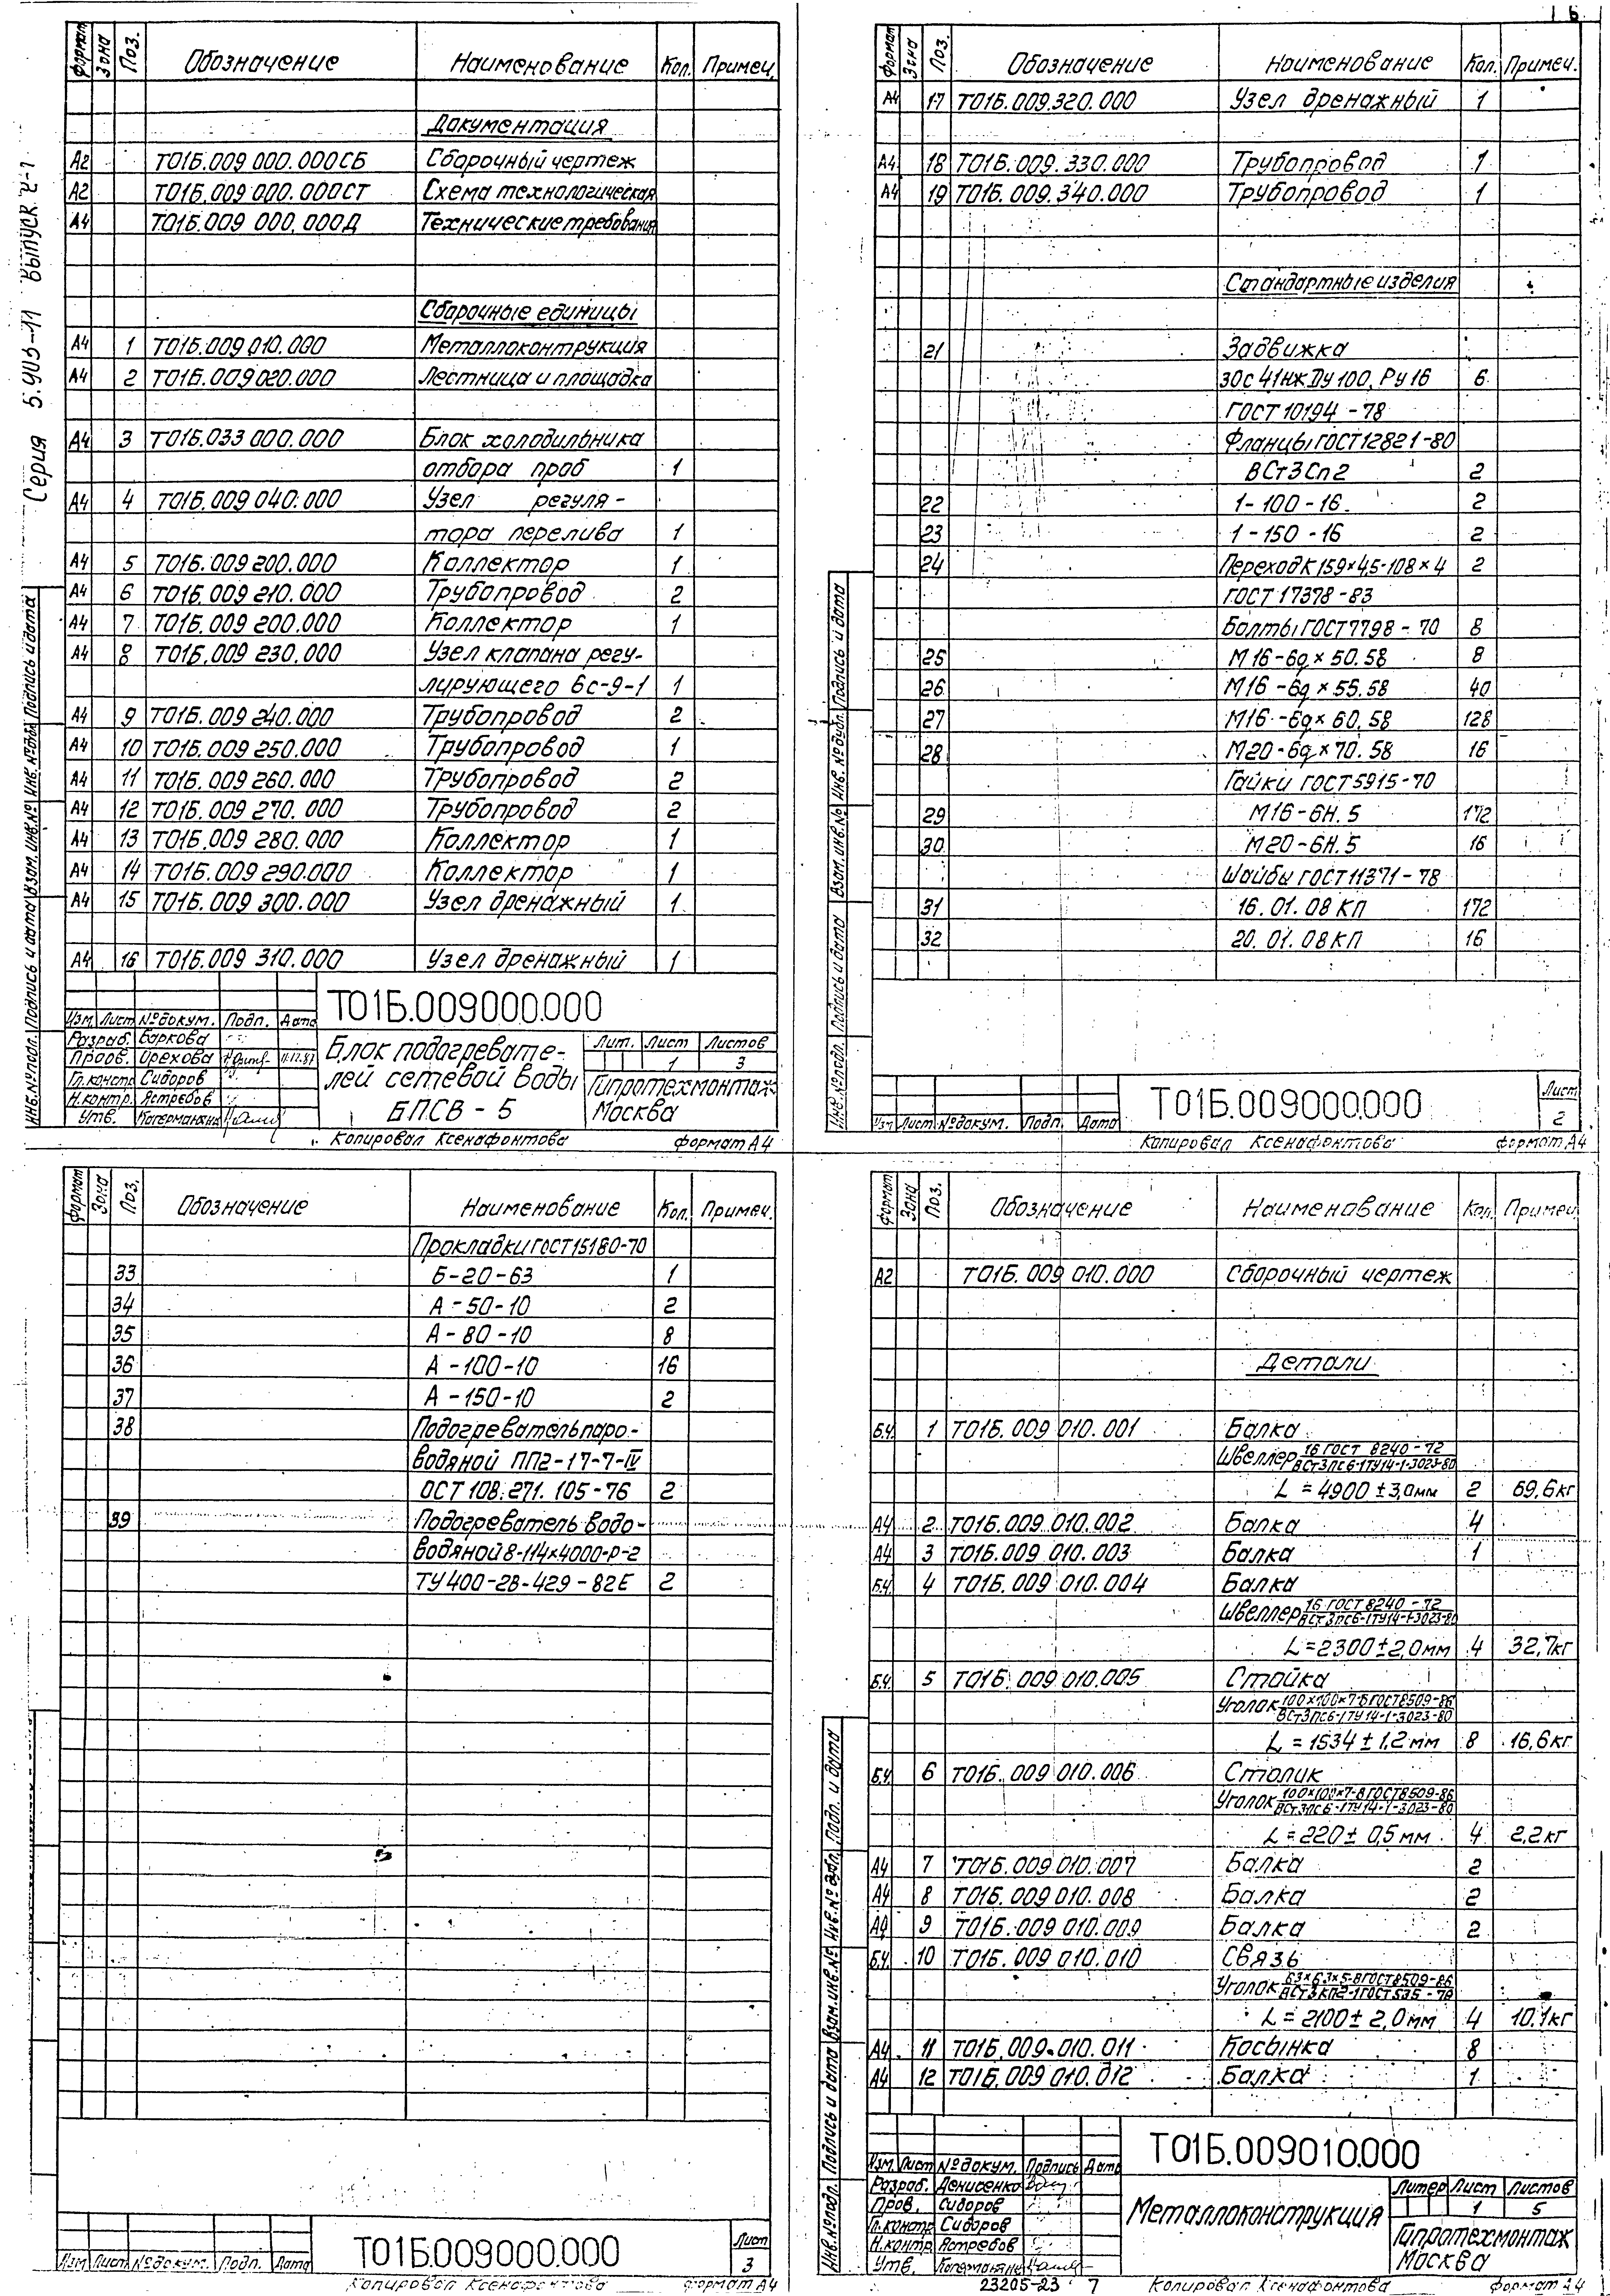 6
Серия 5.903-11 Выпуск 2-1
Формат Зона Поз. Обозначение Наименование Кол. Примеч.
Документация
А2 Т01Б.009 000.000СБ Сборочный чертеж
А2 Т01Б.009 000.000СТ Схема технологическая
А4 Т01Б.009 000.000Д Технические требования
Сборочные единицы
А4 1 Т01Б.009 010.000 Металлоконтрукция
А4 2 Т01Б.009 020.000 Лестница и площадка
А4 3 Т01Б.033 000.000 Блок холодильника
отбора проб 1
А4 4 Т01Б.009 040.000 Узел регуля-
тора перелива 1
А4 5 Т01Б.009 200.000 Коллектор 1
А4 6 Т01Б.009 210.000 Трубопровод 2
А4 7 Т01Б.009 200.000 Коллектор 1
А4 8 Т01Б.009 230.000 Узел клапана регу-
лирующего 6с-9-1 1
А4 9 Т01Б.009 240.000 Трубопровод 2
А4 10 Т01Б.009 250.000 Трубопровод 1
А4 11 Т01Б.009 260.000 Трубопровод 2
А4 12 Т01Б.009 270.000 Трубопровод 2
А4 13 Т01Б.009 280.000 Коллектор 1
А4 14 Т01Б.009 290.000 Коллектор 1
А4 15 Т01Б.009 300.000 Узел дренажный 1
А4 16 Т01Б.009 310.000 Узел дренажный 1
Инв.№подл. Подпись и дата Взам.инв.№ Инв.№дубл. Подпись и дата
Т01Б.009000.000
Изм. Лист №докум. Подп. Дата
Разраб. Баркова
Пров. Орехова 11.12.87
Гл.констр. Сидоров
Н.контр. Ястребов
Утв. Когерманкин
Блок подогревате-
лей сетевой воды
БПСВ - 5
Лит. Лист Листов
1 3
Гипротехмонтаж
Москва
Копировал Ксенафонтова формат А4
Формат Зона Поз. Обозначение Наименование Кол. Примеч.
А4 17 Т01Б.009.320.000 Узел дренажный 1
А4 18 Т01Б.009.330.000 Трубопровод 1
А4 19 Т01Б.009.340.000 Трубопровод 1
Стандартные изделия
21 Задвижка
30с 41нж Ду 100, Ру 16 6
ГОСТ 10194 - 78
Фланцы ГОСТ 12821-80
ВСт3Сп2 2
22 1-100-16 2
23 1-150-16 2
24 Переход К159×4,5-108×4 2
ГОСТ 17378-83
Болты ГОСТ 7798-70 8
25 М16-6g×50.58 8
26 М16-6g×55.58 40
27 М16-6g×60.58 128
28 М20-6g×70.58 16
Гайки ГОСТ 5915-70
29 М16-6Н.5 172
30 М20-6Н.5 16
Шайбы ГОСТ 11371-78
31 16.01.08 КП 172
32 20.01.08 КП 16
Инв.№подл. Подпись и дата Взам.инв.№ Инв.№дубл. Подпись и дата
Изм Лист №докум. Подп. Дата
Т01Б.009000.000
Лист
2
Копировал Ксенафонтова формат А4
Формат Зона Поз. Обозначение Наименование Кол. Примеч.
Прокладки ГОСТ 15180-70
33 Б-20-63 1
34 А-50-10 2
35 А-80-10 8
36 А-100-10 16
37 А-150-10 2
38 Подогреватель паро-
водяной ПП2-17-7-IV
ОСТ 108.271.105-76 2
39 Подогреватель водо-
водяной 8-114×4000-Р-2
ТУ 400-28-429-82Е 2
Изм Лист №докум. Подп. Дата
Т01Б.009000.000
Лист
3
Копировал Ксенафонтова формат А4
Формат Зона Поз. Обозначение Наименование Кол. Примеч.
А2 Т01Б.009 010.000 Сборочный чертеж
Детали
Б.Ч. 1 Т01Б.009 010.001 Балка
Швеллер 16 ГОСТ 8240-72
ВСт3пс6-1 ТУ14-1-3023-80
L = 4900 ± 3,0мм 2 69,6кг
А4 2 Т01Б.009 010.002 Балка 4
А4 3 Т01Б.009 010.003 Балка 1
Б.Ч. 4 Т01Б.009 010.004 Балка
Швеллер 16 ГОСТ 8240-72
ВСт3пс6-1 ТУ14-1-3023-80
L = 2300 ± 2,0мм 4 32,7кг
Б.Ч. 5 Т01Б.009 010.005 Стойка
Уголок 100×100×7-Б ГОСТ 8509-86
ВСт3пс6-1 ТУ14-1-3023-80
L = 1534 ± 1,2 мм 8 16,6кг
Б.Ч. 6 Т01Б.009 010.006 Столик
Уголок 100×100×7-В ГОСТ 8509-86
ВСт3пс6-1 ТУ14-1-3023-80
L = 220 ± 0,5 мм 4 2,2кг
А4 7 Т01Б.009 010.007 Балка 2
А4 8 Т01Б.009 010.008 Балка 2
А4 9 Т01Б.009 010.009 Балка 2
Б.Ч. 10 Т01Б.009 010.010 Связь
Уголок 63×63×5-В ГОСТ 8509-86
ВСт3кп2-1 ГОСТ 535-79
L = 2100 ± 2,0мм 4 10,1кг
А4 11 Т01Б.009.010.011 Косынка 8
А4 12 Т01Б.009 010.012 Балка 1
Инв.№подл. Подпись и дата Взам.инв.№ Инв.№дубл. Подп. и дата
Т01Б.009010.000
Изм. Лист №докум. Подпись Дата
Разраб. Денисенко
Пров. Сидоров
Гл.контр Сидоров
Н.контр. Ястребов
Утв. Когерманкин
Металлоконструкция
Литер Лист Листов
1 5
Гипротехмонтаж
Москва
23205-23 7 Копировал Ксенафонтова формат А4